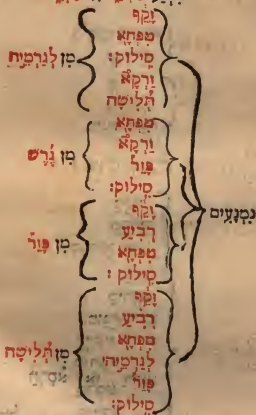 נִמְנָעִים
זָקֵף
טִפְחָא
סִילוּק:
זַרְקָא
תְּלִישָׁה
מִן לְגַרְמֵיהּ
טִפְחָא
זַרְקָא
פָּזֵר
סִילוּק:
מִן גֶּרֶשׁ
זָקֵף
רְבִיעַ
טִפְחָא
סִילוּק :
מִן פָּזֵר
זָקֵף
רְבִיעַ
טִפְחָא
לְגַרְמֵיהּ
פָּזֵר
סִילוּק:
מִן תְּלִישָׁה